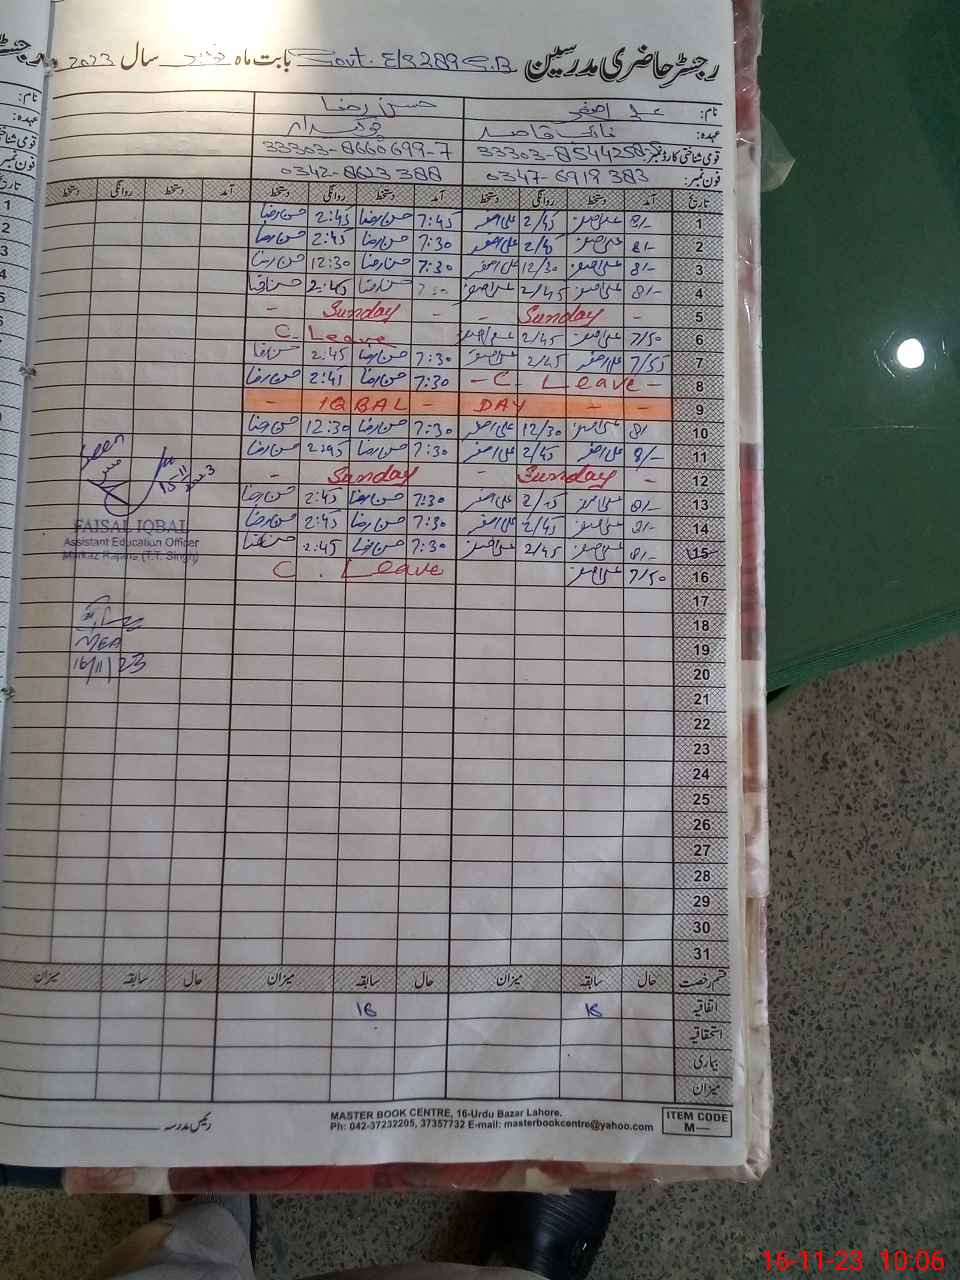 رجسٹر حاضری مدرسین Govt. E/S 289 G.B بابت ماہ نومبر سال 2023
نام: علی اصغر حسن رضا
عہدہ: نائب قاصد چوکیدار
قومی شناختی کارڈ نمبر: 33303-8544258 33303-8660699-7
فون نمبر: 0347-6919383 0342-8623388
تاریخ آمد دستخط روانگی دستخط آمد دستخط روانگی دستخط آمد دستخط روانگی دستخط
1 8/- علی اصغر 2/45 علی اصغر 7:45 حسن رضا 2:45 حسن رضا
2 8/- علی اصغر 2/45 علی اصغر 7:30 حسن رضا 2:45 حسن رضا
3 8/- علی اصغر 12/30 علی اصغر 7:30 حسن رضا 12:30 حسن رضا
4 8/- علی اصغر 2/45 علی اصغر 7:30 حسن رضا 2:45 حسن رضا
5 - Sunday - - Sunday -
6 7/50 علی اصغر 2/45 علی اصغر C. Leave
7 7/55 علی اصغر 2/45 علی اصغر 7:30 حسن رضا 2:45 حسن رضا
8 - C. Leave - 7:30 حسن رضا 2:45 حسن رضا
9 - IQBAL - DAY - -
10 8/- علی اصغر 12/30 علی اصغر 7:30 حسن رضا 12:30 حسن رضا
11 8/- علی اصغر 2/45 علی اصغر 7:30 حسن رضا 2:45 حسن رضا
12 - Sunday - - Sunday -
13 8/- علی اصغر 2/45 علی اصغر 7:30 حسن رضا 2:45 حسن رضا
14 8/- علی اصغر 2/45 علی اصغر 7:30 حسن رضا 2:45 حسن رضا
15 8/- علی اصغر 2/45 علی اصغر 7:30 حسن رضا 2:45 حسن رضا
16 7/50 علی اصغر C. Leave
17
18
19
20
21
22
23
24
25
26
27
28
29
30
31
Seen
15-11
2023
FAISAL IQBAL
Assistant Education Officer
Markaz Rajana (T.T. Singh)
MEA
16/11/23
قسم رخصت حال سابقہ میزان حال سابقہ میزان حال سابقہ میزان
اتفاقیہ 16 16
استحقاقیہ
بیماری
میزان
رئیس مدرسہ
MASTER BOOK CENTRE, 16-Urdu Bazar Lahore.
Ph: 042-37232205, 37357732 E-mail: masterbookcentre@yahoo.com
ITEM CODE
M—
16-11-23 10:06